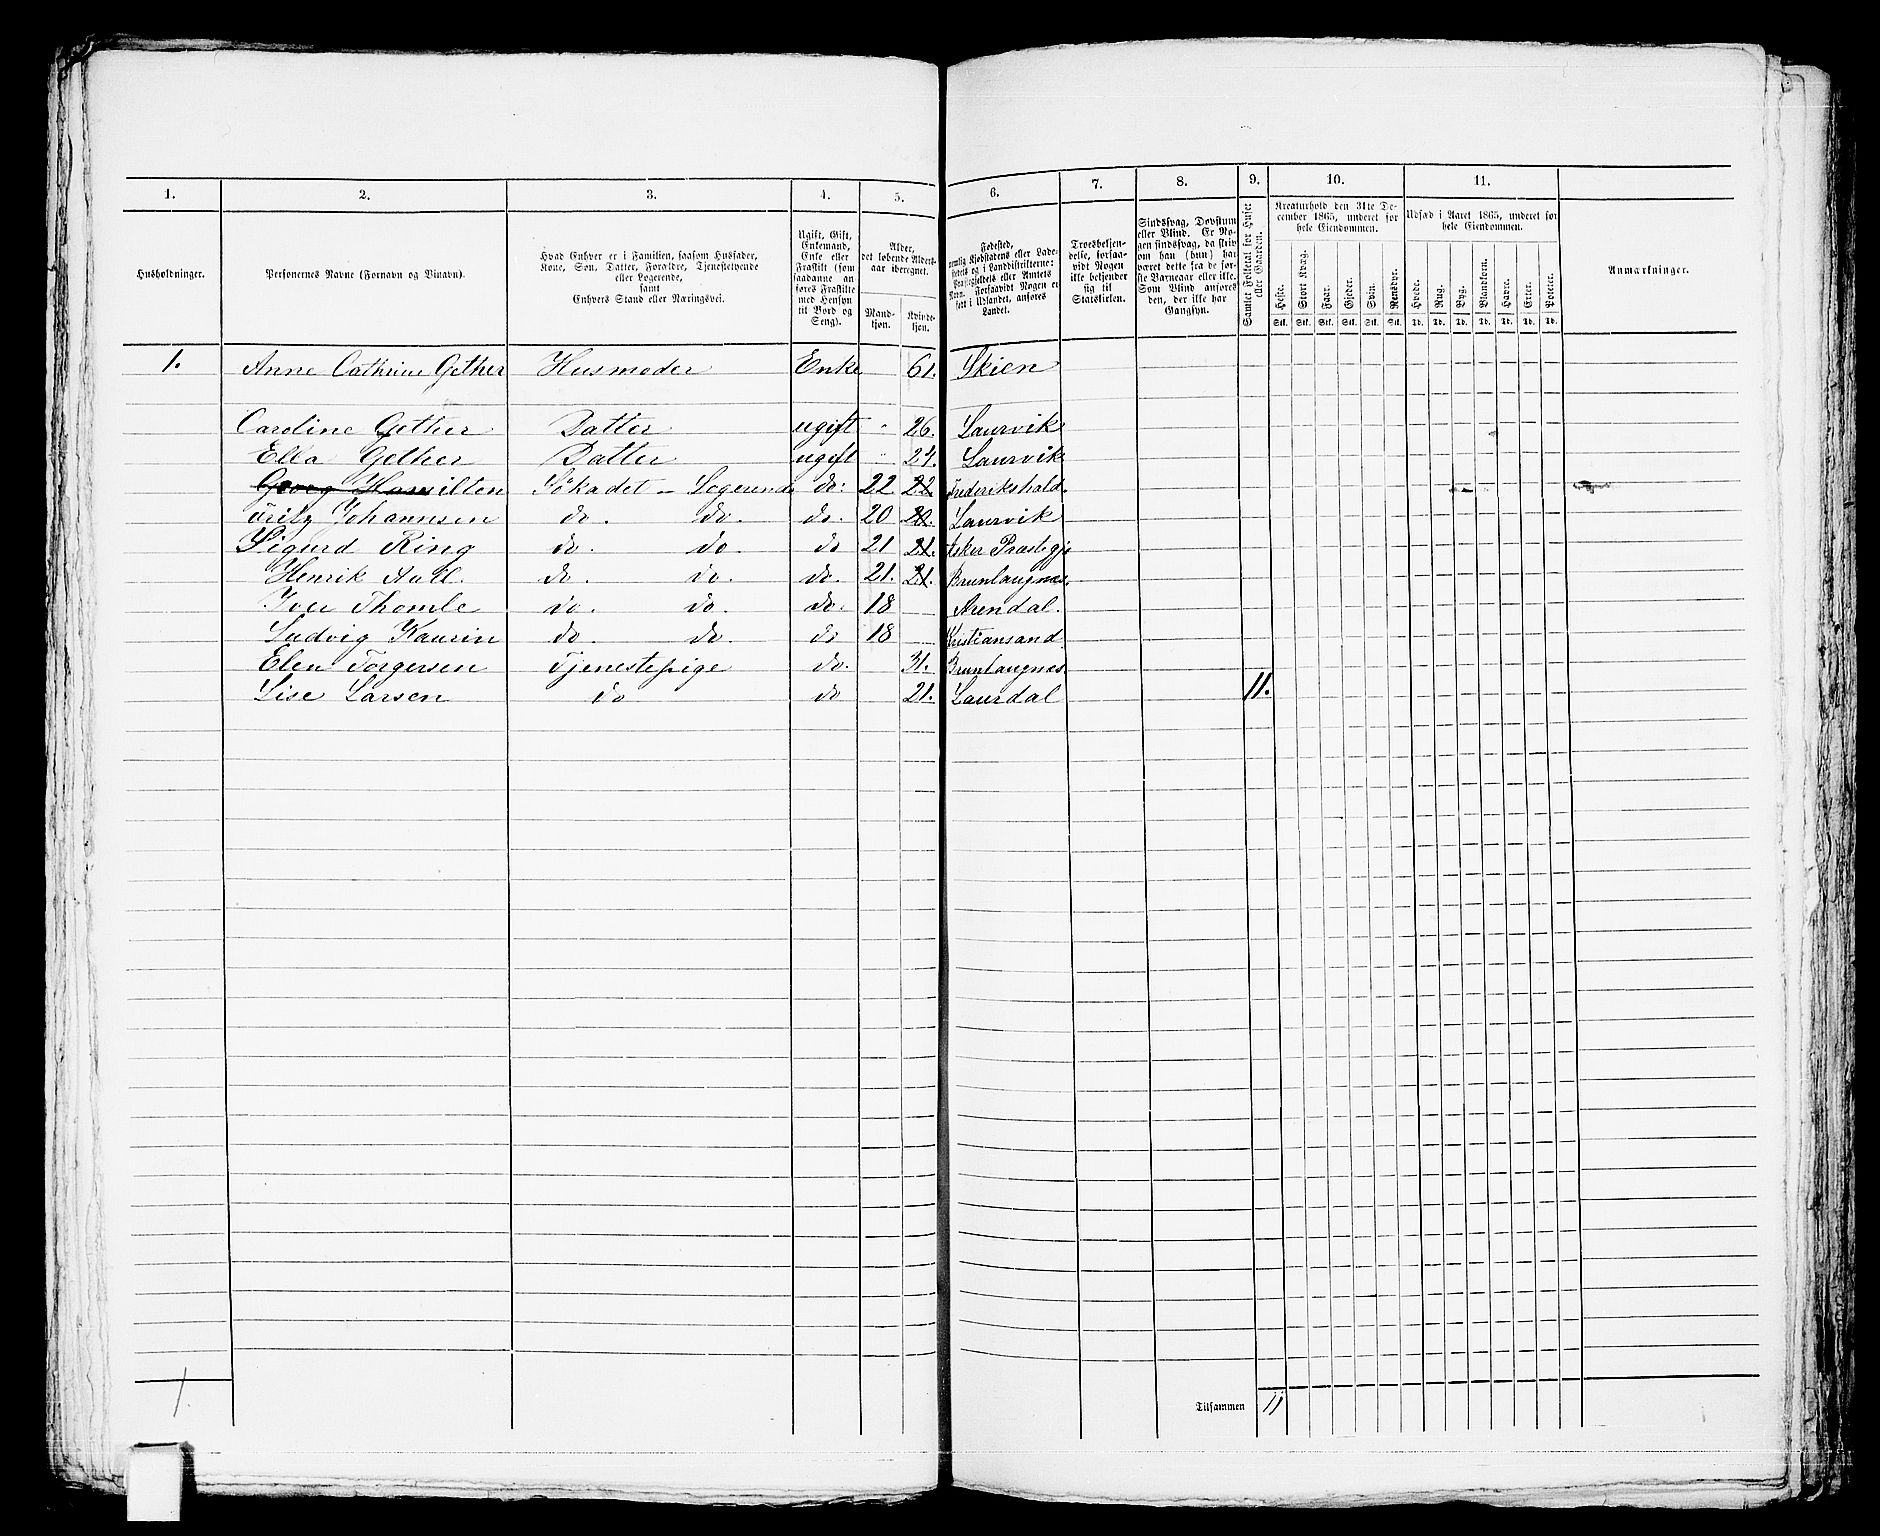 1. 2. 3. 4. 5. 6. 7. 8. 9. 10. 11.
Husholdninger.
Personernes Navne (Fornavn og Tilnavn).
Hvad Enhver er i Familien, saasom Husfader,
Kone, Søn, Datter, Forældre, Tjenestetyende
eller Logerende,
samt
Enhvers Stand eller Næringsvei.
Ugift, Gift,
Enkemand,
Enke eller
Fraskilt (som
saadanne an-
føres Fraskilte
med Hensyn
til Bord og
Seng).
Alder,
det løbende Alders-
aar iberegnet.
Mand-
kjøn.
Kvinde-
kjøn.
Fødested,
nemlig Kjøbstadens eller Lade-
stedets og i Landdistrikterne:
Præstegjeldets eller Amtets
Navn. Forsaavidt Nogen er
født i Udlandet, anføres
Landet.
Troesbekjen-
delse, forsaa-
vidt Nogen
ikke bekjender
sig til
Statskirken.
Sindssvag, Døvstum
eller Blind. Er No-
gen sindssvag, da skriv
om han (hun) har
været dette fra de før-
ste Barneaar eller ikke.
Som Blind anføres
den, der ikke har
Gangsyn.
Samlet Folketal for Huset
eller Gaarden.
Kreaturhold den 31te De-
cember 1865, underet for
hele Eiendommen.
Heste. Stort Kvæg. Faar. Gjeder. Sviin. Rensdyr.
Stk. Stk. Stk. Stk. Stk. Stk.
Udsæd i Aaret 1865, underet for
hele Eiendommen.
Hvede. Rug. Byg. Blandkorn. Havre. Erter. Poteter.
Td. Td. Td. Td. Td. Td. Td.
Anmærkninger.
1. Anne Cathrine Gether Husmoder Enke 61. Skien
Caroline Gether Datter ugift " 26. Laurvik
Ella Gether Datter ugift " 24. Laurvik
Georg Hamilton Søkadet - Logerende do: 22 22. Frederikshald.
Fritz Johannsen do. do. do. 20 20. Laurvik
Sigurd Ring do. do. do 21 21. Asker Præstegj
Henrik Aall. do. do. do. 21. 21. Brunlaugnæs.
Iver Thomle do. do. do. 18 Arendal.
Ludvig Kaurin do. do. do 18 Kristiansand
Elen Torgersen Tjenestepige do. 31. Brunlaugnæs.
Lise Larsen do do 21. Laurdal 11.
1.
Tilsammen 11